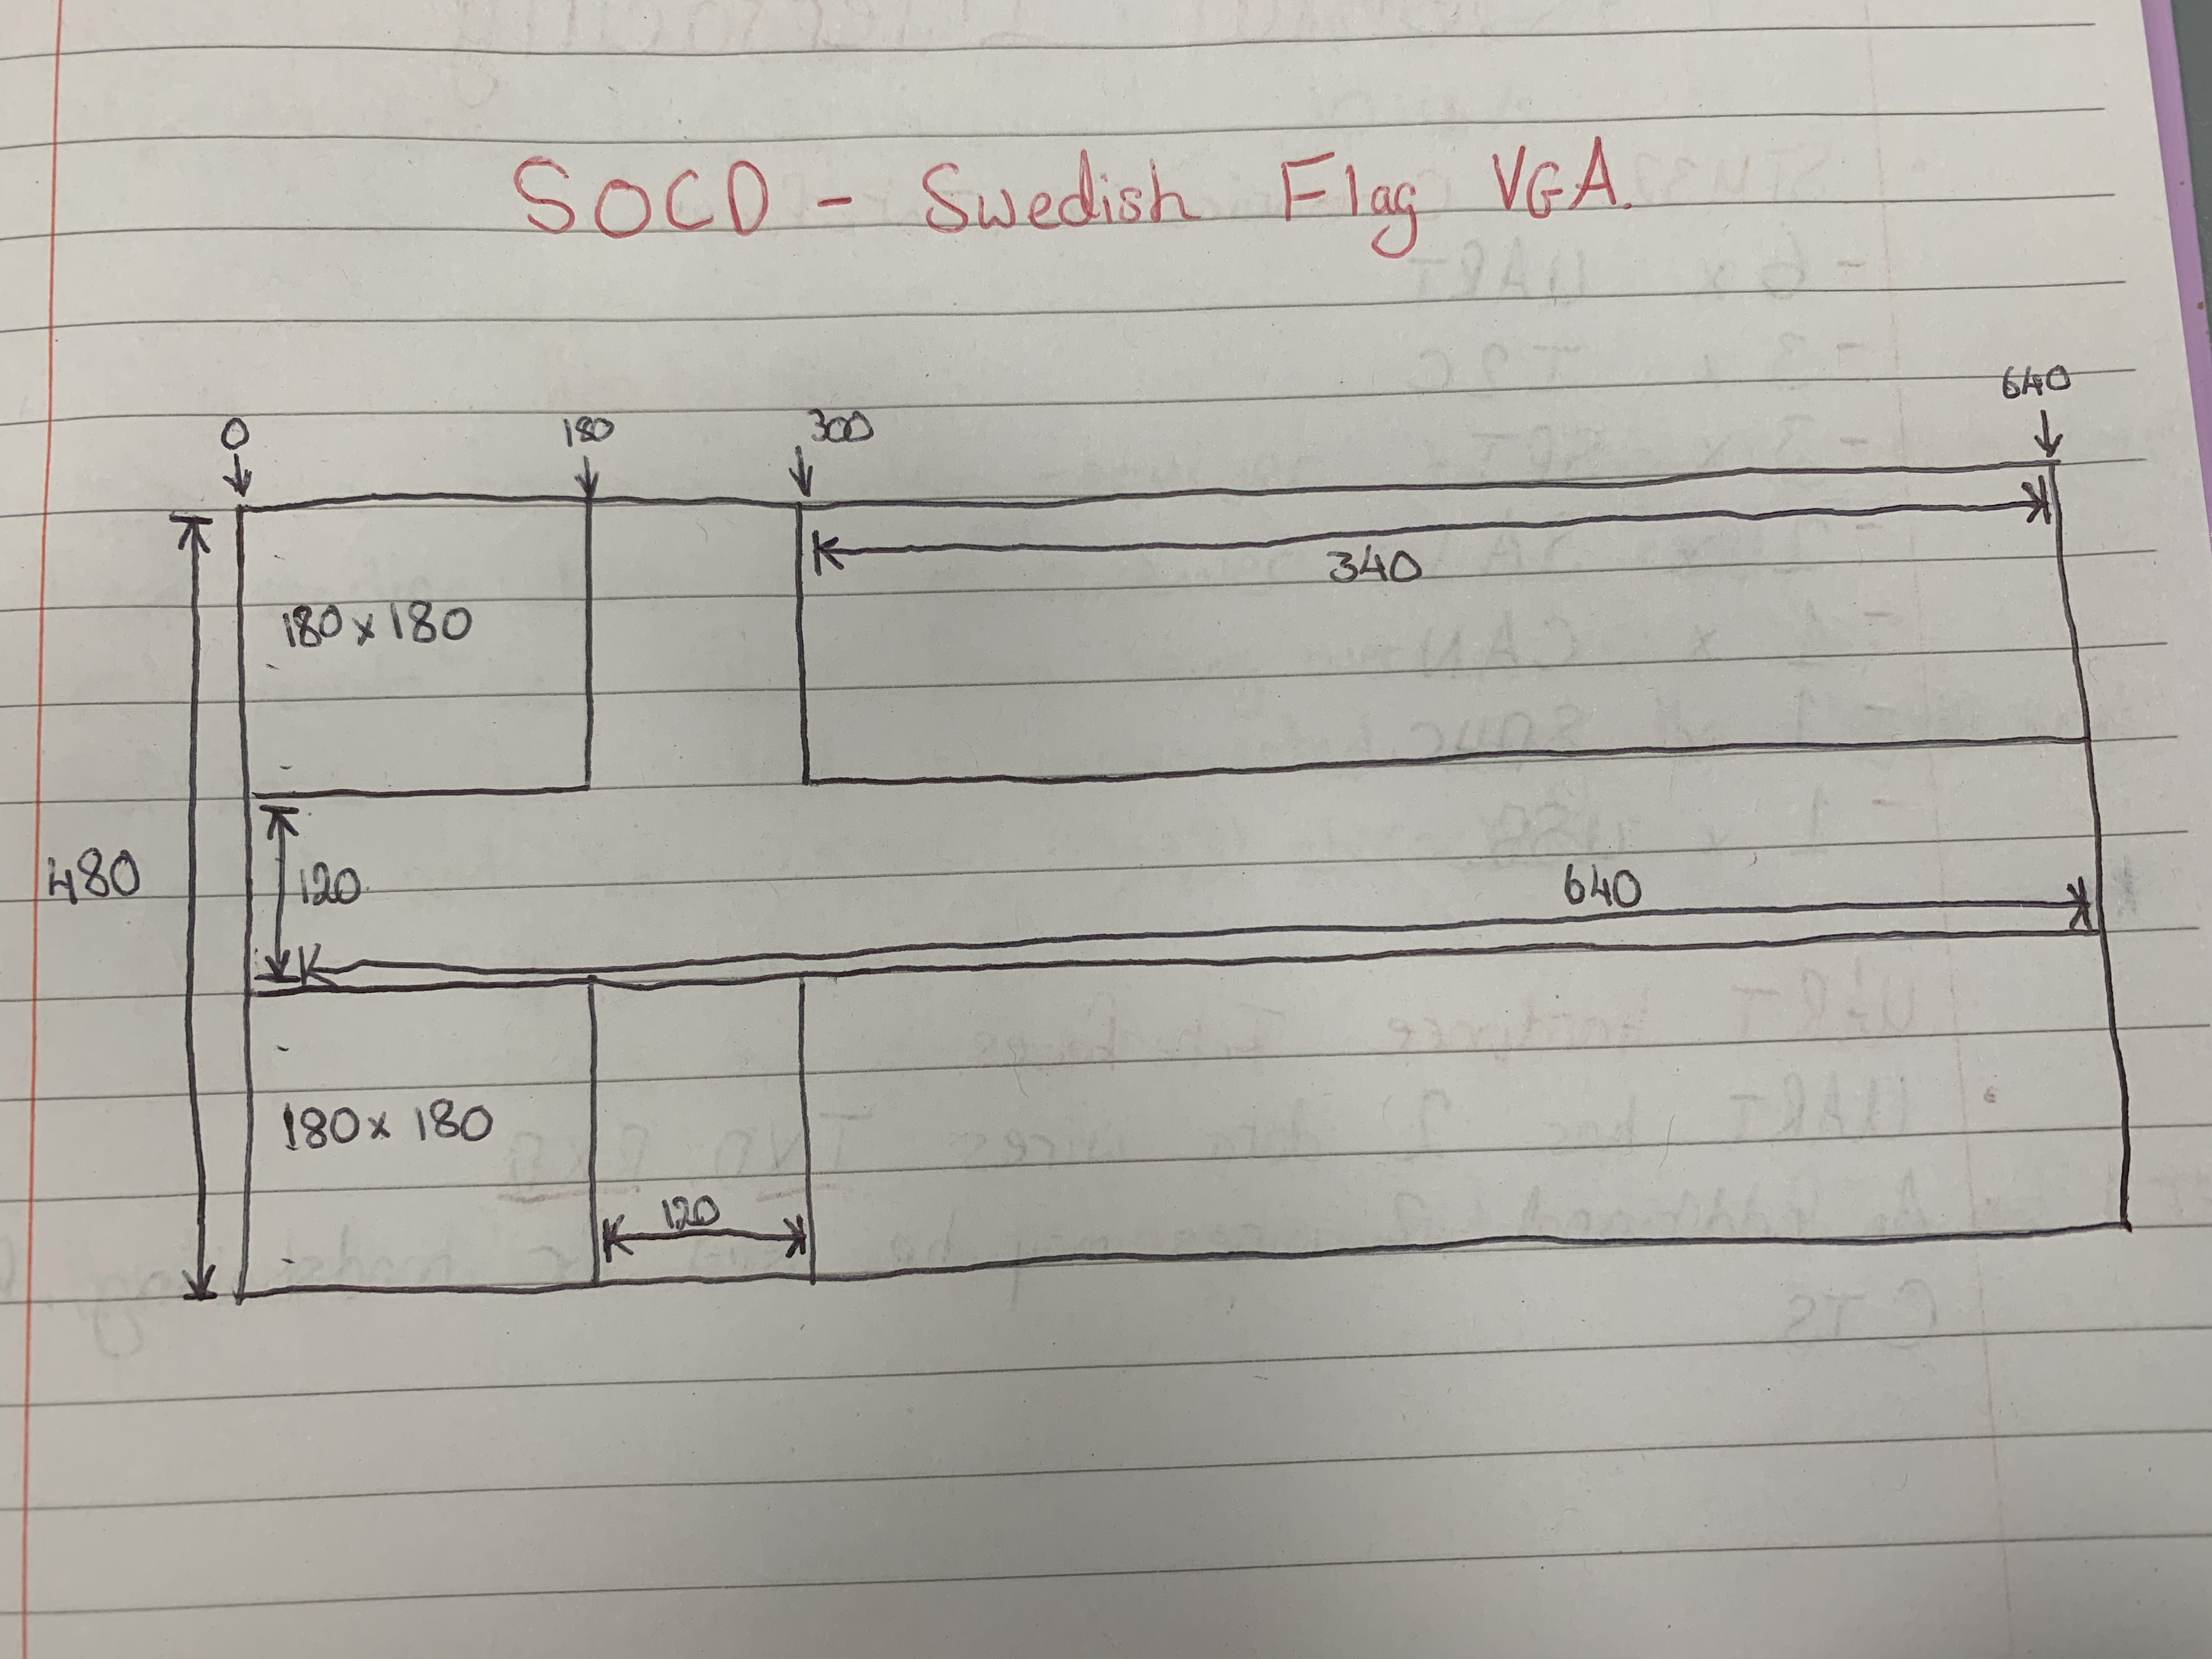 SOCD - Swedish Flag VGA.
0 180 300 640
340
180 x 180
480
120
640
180 x 180
120